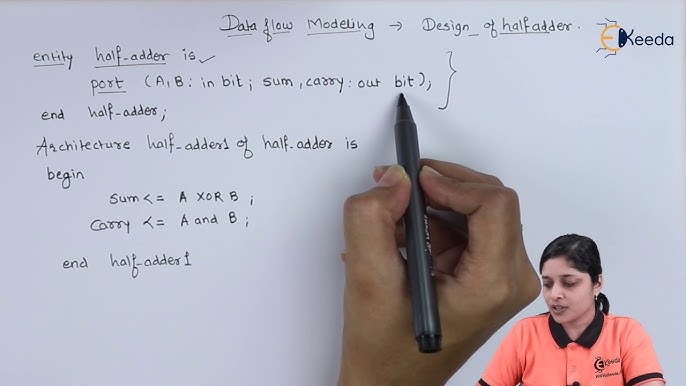 Data flow Modeling → Design_of half adder.
EKeeda
entity half-adder is
port (A,B: in bit; sum, carry: out bit);
end half-adder;
Architecture half-adder1 of half-adder is
begin
sum <= A XOR B ;
carry <= A and B ;
end half-adder1
EKeeda